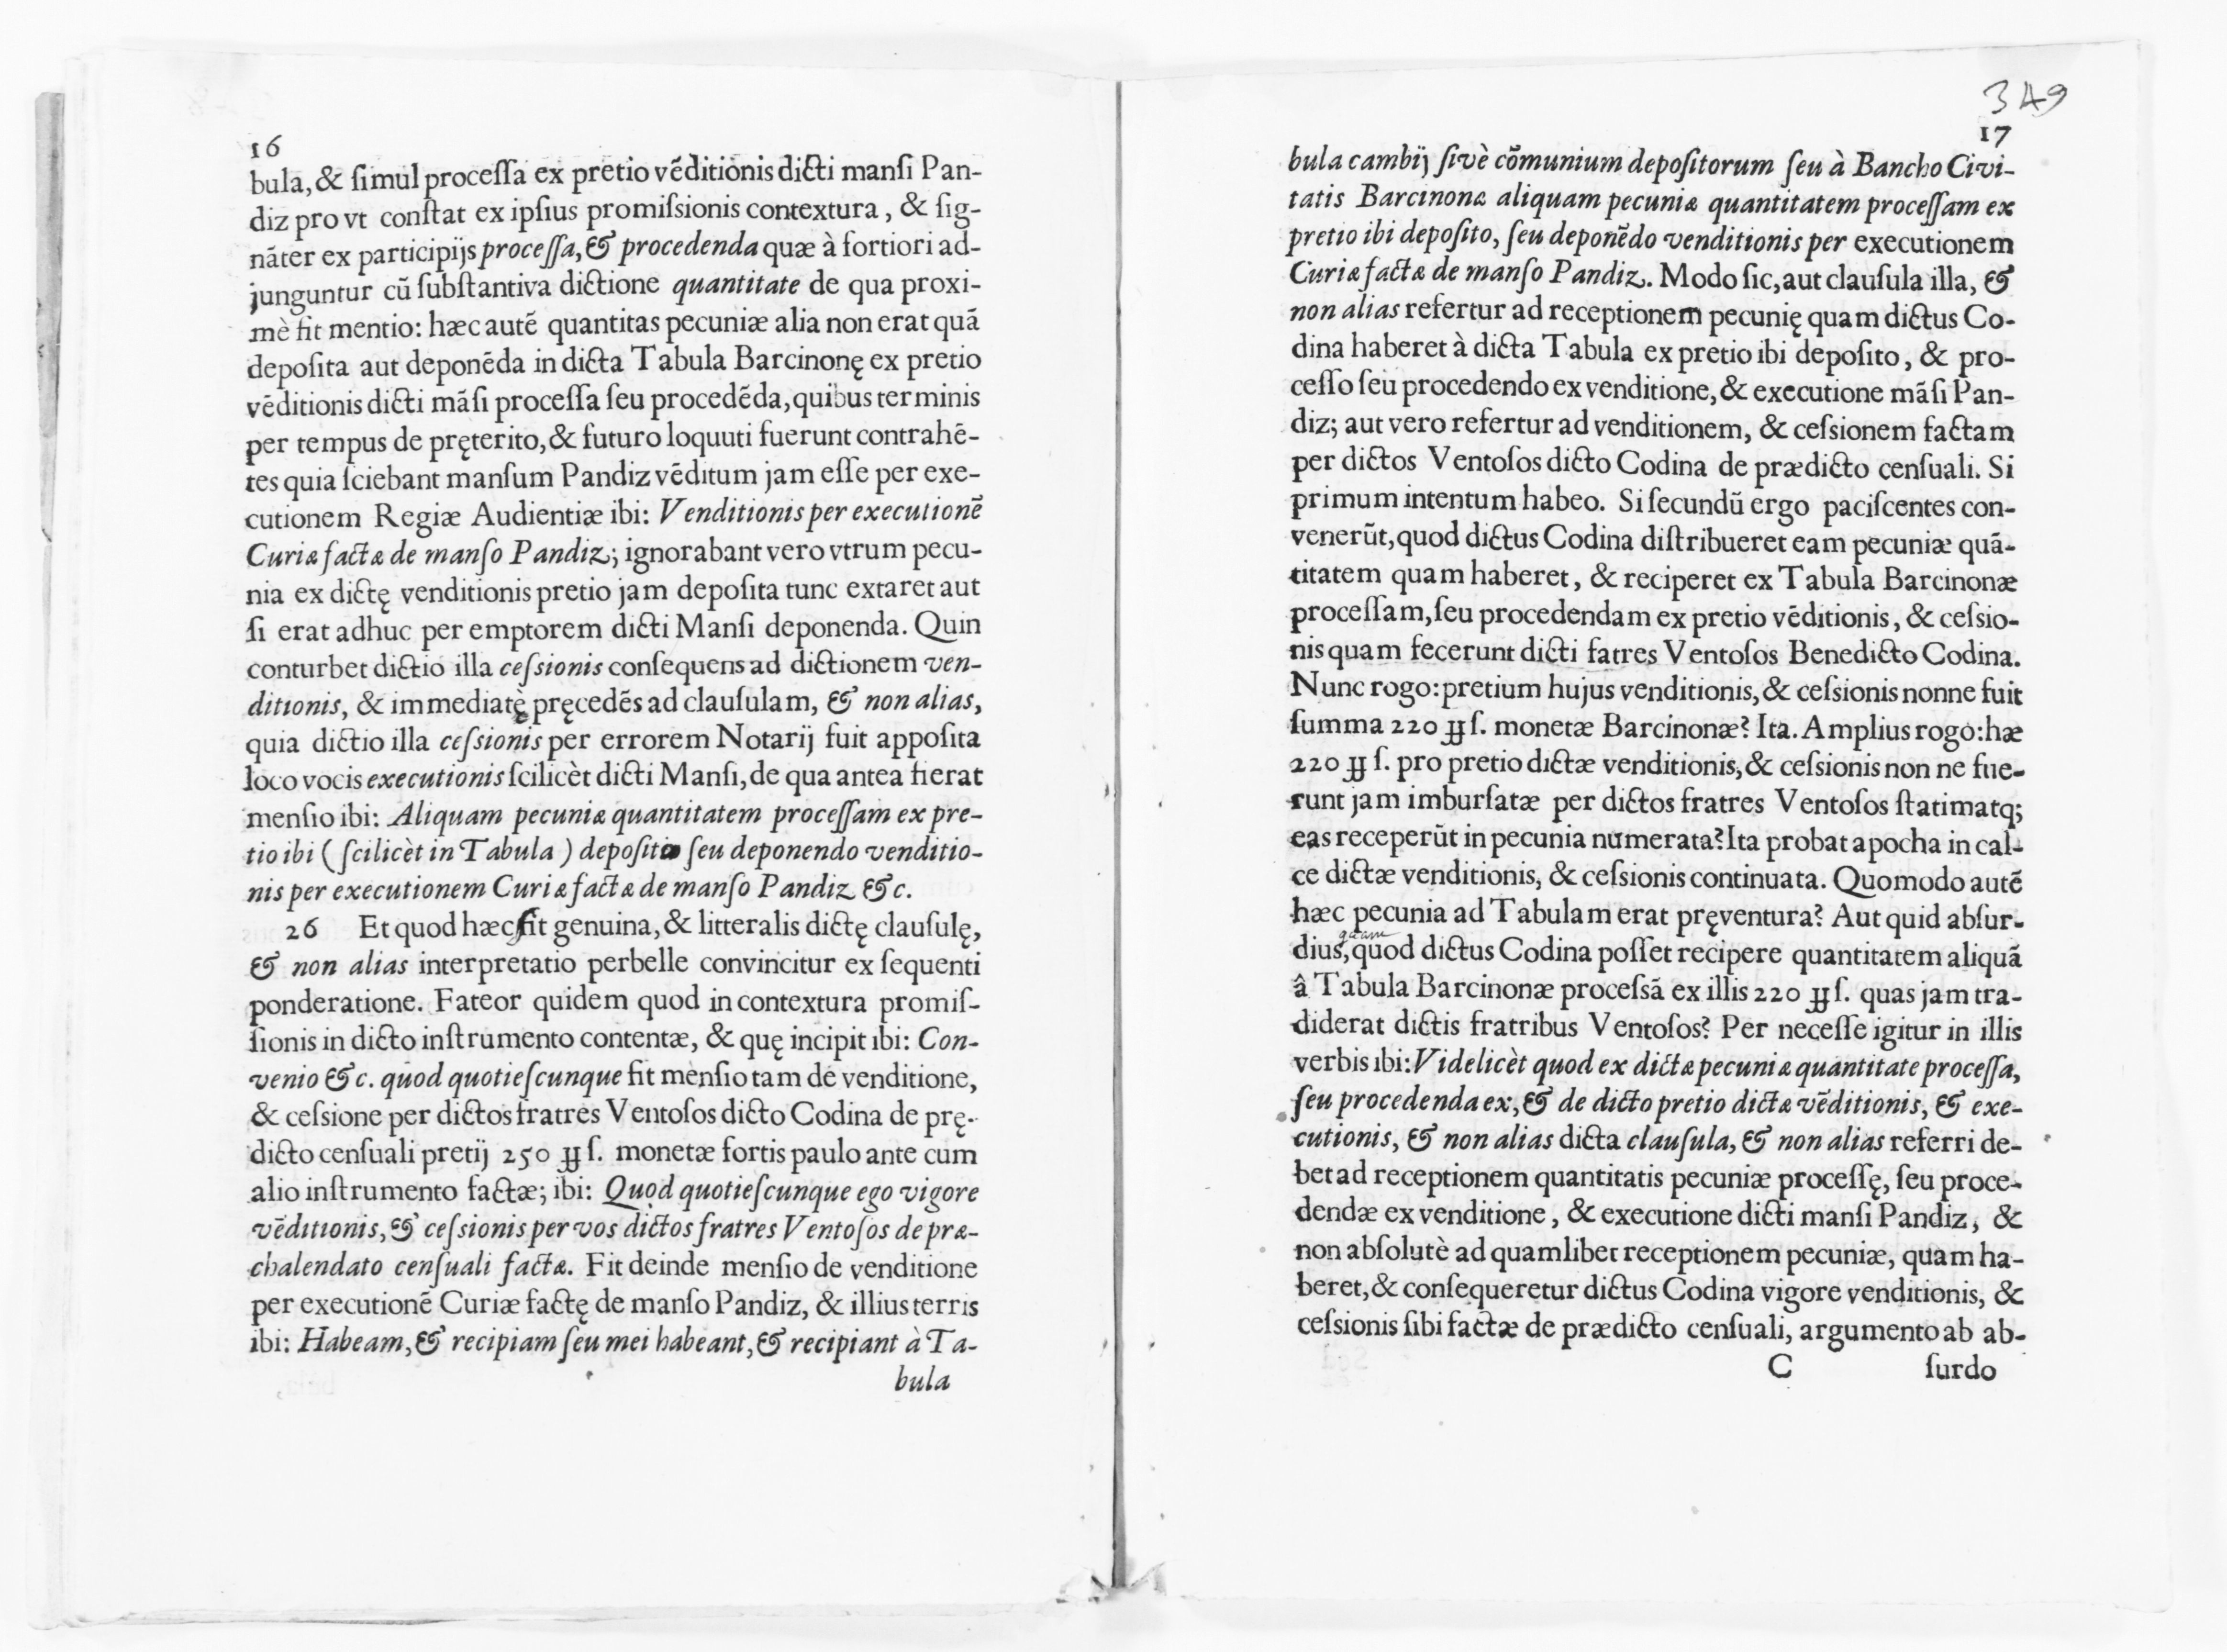 16
bula, & ſimul proceſſa ex pretio vẽditionis dicti manſi Pan-
diz pro vt conſtat ex ipſius promiſsionis contextura, & ſig-
nãter ex participijs proceſſa, & procedenda quæ à fortiori ad-
junguntur cũ ſubſtantiva dictione quantitate de qua proxi-
mè fit mentio: hæc autẽ quantitas pecuniæ alia non erat quã
depoſita aut deponẽda in dicta Tabula Barcinonę ex pretio
vẽditionis dicti mãſi proceſſa ſeu procedẽda, quibus terminis
per tempus de pręterito, & futuro loquuti fuerunt contrahẽ-
tes quia ſciebant manſum Pandiz vẽditum jam eſſe per exe-
cutionem Regiæ Audientiæ ibi: Venditionis per executionẽ
Curiæ factæ de manſo Pandiz; ignorabant vero vtrum pecu-
nia ex dictę venditionis pretio jam depoſita tunc extaret aut
ſi erat adhuc per emptorem dicti Manſi deponenda. Quin
conturbet dictio illa ceſsionis conſequens ad dictionem ven-
ditionis, & immediatè pręcedẽs ad clauſulam, & non alias,
quia dictio illa ceſsionis per errorem Notarij fuit appoſita
loco vocis executionis ſcilicèt dicti Manſi, de qua antea fierat
menſio ibi: Aliquam pecuniæ quantitatem proceſſam ex pre-
tio ibi ( ſcilicèt in Tabula ) depoſito ſeu deponendo venditio-
nis per executionem Curiæ factæ de manſo Pandiz &c.
26 Et quod hæc ſit genuina, & litteralis dictę clauſulę,
& non alias interpretatio perbelle convincitur ex ſequenti
ponderatione. Fateor quidem quod in contextura promiſ-
ſionis in dicto inſtrumento contentæ, & quę incipit ibi: Con-
venio &c. quod quotieſcunque fit menſio tam de venditione,
& ceſsione per dictos fratres Ventoſos dicto Codina de prę-
dicto cenſuali pretij 250 ɥɥ ſ. monetæ fortis paulo ante cum
alio inſtrumento factæ; ibi: Quod quotieſcunque ego vigore
vẽditionis, & ceſsionis per vos dictos fratres Ventoſos de præ-
chalendato cenſuali factæ. Fit deinde menſio de venditione
per executionẽ Curiæ factę de manſo Pandiz, & illius terris
ibi: Habeam, & recipiam ſeu mei habeant, & recipiant à Ta-
bula
349
17
bula cambij ſivè cõmunium depoſitorum ſeu à Bancho Civi-
tatis Barcinonæ aliquam pecuniæ quantitatem proceſſam ex
pretio ibi depoſito, ſeu deponẽdo venditionis per executionem
Curiæ factæ de manſo Pandiz. Modo ſic, aut clauſula illa, &
non alias refertur ad receptionem pecunię quam dictus Co-
dina haberet à dicta Tabula ex pretio ibi depoſito, & pro-
ceſſo ſeu procedendo ex venditione, & executione mãſi Pan-
diz; aut vero refertur ad venditionem, & ceſsionem factam
per dictos Ventoſos dicto Codina de prædicto cenſuali. Si
primum intentum habeo. Si ſecundũ ergo paciſcentes con-
venerũt, quod dictus Codina diſtribueret eam pecuniæ quã-
titatem quam haberet, & reciperet ex Tabula Barcinonæ
proceſſam, ſeu procedendam ex pretio vẽditionis, & ceſsio-
nis quam fecerunt dicti fatres Ventoſos Benedicto Codina.
Nunc rogo: pretium hujus venditionis, & ceſsionis nonne fuit
ſumma 220 ɥɥ ſ. monetæ Barcinonæ? Ita. Amplius rogo: hæ
220 ɥɥ ſ. pro pretio dictæ venditionis, & ceſsionis non ne fue-
runt jam imburſatæ per dictos fratres Ventoſos ſtatimatq;
eas receperũt in pecunia numerata? Ita probat apocha in cal-
ce dictæ venditionis, & ceſsionis continuata. Quomodo autẽ
hæc pecunia ad Tabulam erat pręventura? Aut quid abſur-
quam
dius, quod dictus Codina poſſet recipere quantitatem aliquã
â Tabula Barcinonæ proceſsã ex illis 220 ɥɥ ſ. quas jam tra-
diderat dictis fratribus Ventoſos? Per neceſſe igitur in illis
verbis ibi: Videlicèt quod ex dictæ pecuniæ quantitate proceſſa,
ſeu procedenda ex:, & de dicto pretio dictæ vẽditionis, & exe-
cutionis, & non alias dicta clauſula, & non alias referri de-
bet ad receptionem quantitatis pecuniæ proceſſę, ſeu proce-
dendæ ex venditione, & executione dicti manſi Pandiz, &
non abſolutè ad quamlibet receptionem pecuniæ, quam ha-
beret, & conſequeretur dictus Codina vigore venditionis, &
ceſsionis ſibi factæ de prædicto cenſuali, argumento ab ab-
C ſurdo